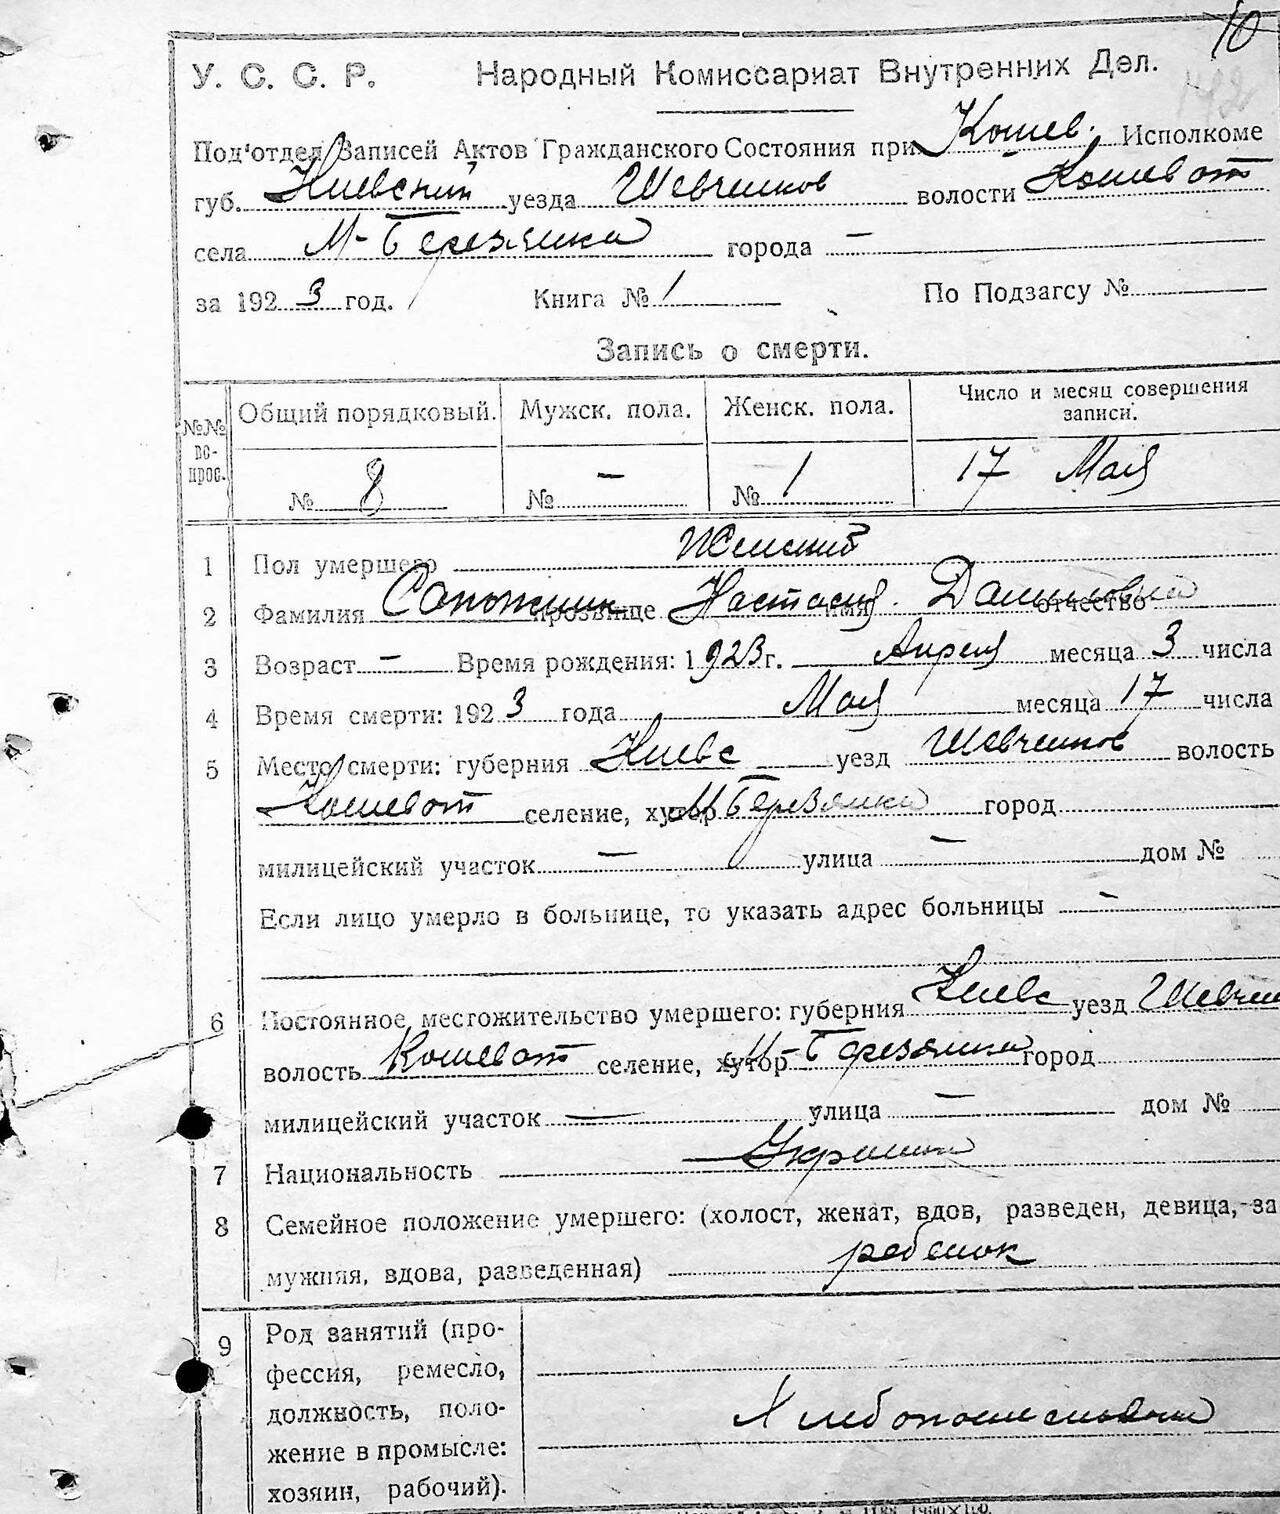 10
У. С. С. Р. Народный Комиссариат Внутренних Дел.
Под'отдел Записей Актов Гражданского Состояния при Кошев. Исполкоме
губ. Киевский уезда Шевченков волости Кошеват
села М-Березянка города —
за 1923 год. Книга № 1 По Подзагсу №
Запись о смерти.
№№ во- прос. Общий порядковый. Мужск. пола. Женск. пола. Число и месяц совершения
записи.
№ 8 № — № 1 17 Мая
1 Пол умершего Женский
2 Фамилия Сапожник прозвище Настасия имя Даниловна отчество
3 Возраст — Время рождения: 1923 г. Апреля месяца 3 числа
4 Время смерти: 1923 года Мая месяца 17 числа
5 Место смерти: губерния Киевс уезд Шевченков волость
Кошеват селение, хутор М Березянка город
милицейский участок — улица — дом №
Если лицо умерло в больнице, то указать адрес больницы —
6 Постоянное местожительство умершего: губерния Киевс уезд Шевчен
волость Кошеват селение, хутор М-Березянка город
милицейский участок — улица — дом №
7 Национальность
8 Семейное положение умершего: (холост, женат, вдов, разведен, девица, за
мужняя, вдова, разведенная) ребенок
9 Род занятий (про-
фессия, ремесло,
должность, поло-
жение в промысле:
хозяин, рабочий).